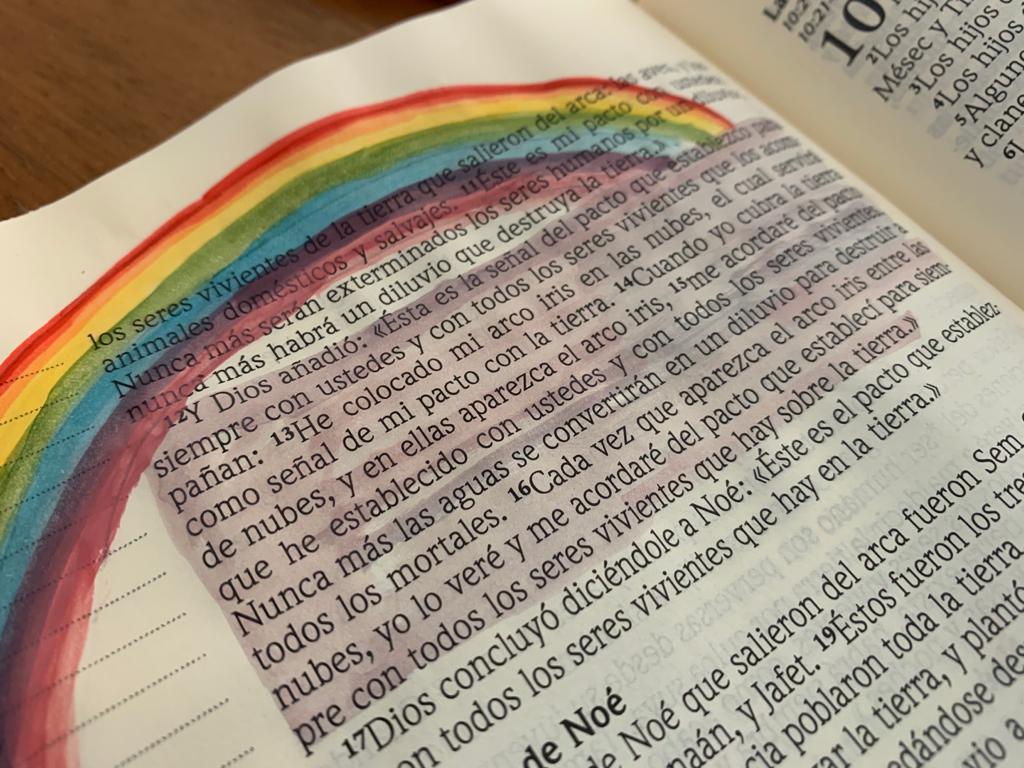 los seres vivientes de la tierra que salieron del arca: las aves, y los
animales domésticos y salvajes. 11Éste es mi pacto con ustedes:
Nunca más serán exterminados los seres humanos por un diluvio;
nunca más habrá un diluvio que destruya la tierra.»
12Y Dios añadió: «Ésta es la señal del pacto que establezco para
siempre con ustedes y con todos los seres vivientes que los acom
pañan: 13He colocado mi arco iris en las nubes, el cual servirá
como señal de mi pacto con la tierra. 14Cuando yo cubra la tierra
de nubes, y en ellas aparezca el arco iris, 15me acordaré del pacto
que he establecido con ustedes y con todos los seres vivientes.
Nunca más las aguas se convertirán en un diluvio para destruir a
todos los mortales. 16Cada vez que aparezca el arco iris entre las
nubes, yo lo veré y me acordaré del pacto que establecí para siem
pre con todos los seres vivientes que hay sobre la tierra.»
17Dios concluyó diciéndole a Noé: «Éste es el pacto que establez
on todos los seres vivientes que hay en la tierra.»
de Noé
de Noé que salieron del arca fueron Sem
naán, y Jafet. 19Éstos fueron los tre
cia poblaron toda la tierra.
rar la tierra, y plantó
edándose des
vio a
La
10:2
10:21
10
2Los hij
Mésec y Ti
3Los hijos
4Los hijos
5Alguno
y clane
6L